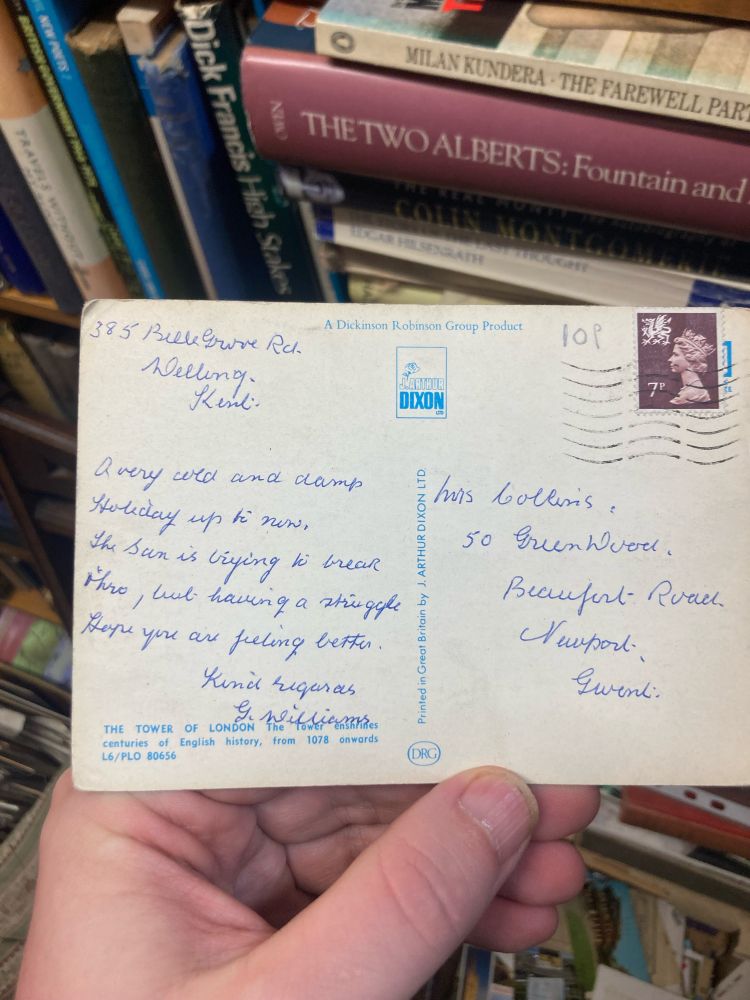 NEW POETS
BRITISH GOVERNMENT
TRAVELS WITHOUT
Dick Francis High Stakes
MILAN KUNDERA · THE FAREWELL PART
THE TWO ALBERTS: Fountain and
COLIN MONTGOMERIE
THOUGHT
EDGAR HILSENRATH
A Dickinson Robinson Group Product
J. ARTHUR
DIXON
LTD
10P
7P
385 BelleGrove Rd.
Welling.
Kent.
A very cold and damp
Holiday up to now.
The Sun is trying to break
thro, but having a struggle
Hope you are feeling better.
Kind regards
G. Williams
THE TOWER OF LONDON The Tower enshrines
centuries of English history, from 1078 onwards
L6/PLO 80656
Printed in Great Britain by J. ARTHUR DIXON LTD.
DRG
Mrs Collins.
50 GreenWood.
Beaufort Road.
Newport.
Gwent.